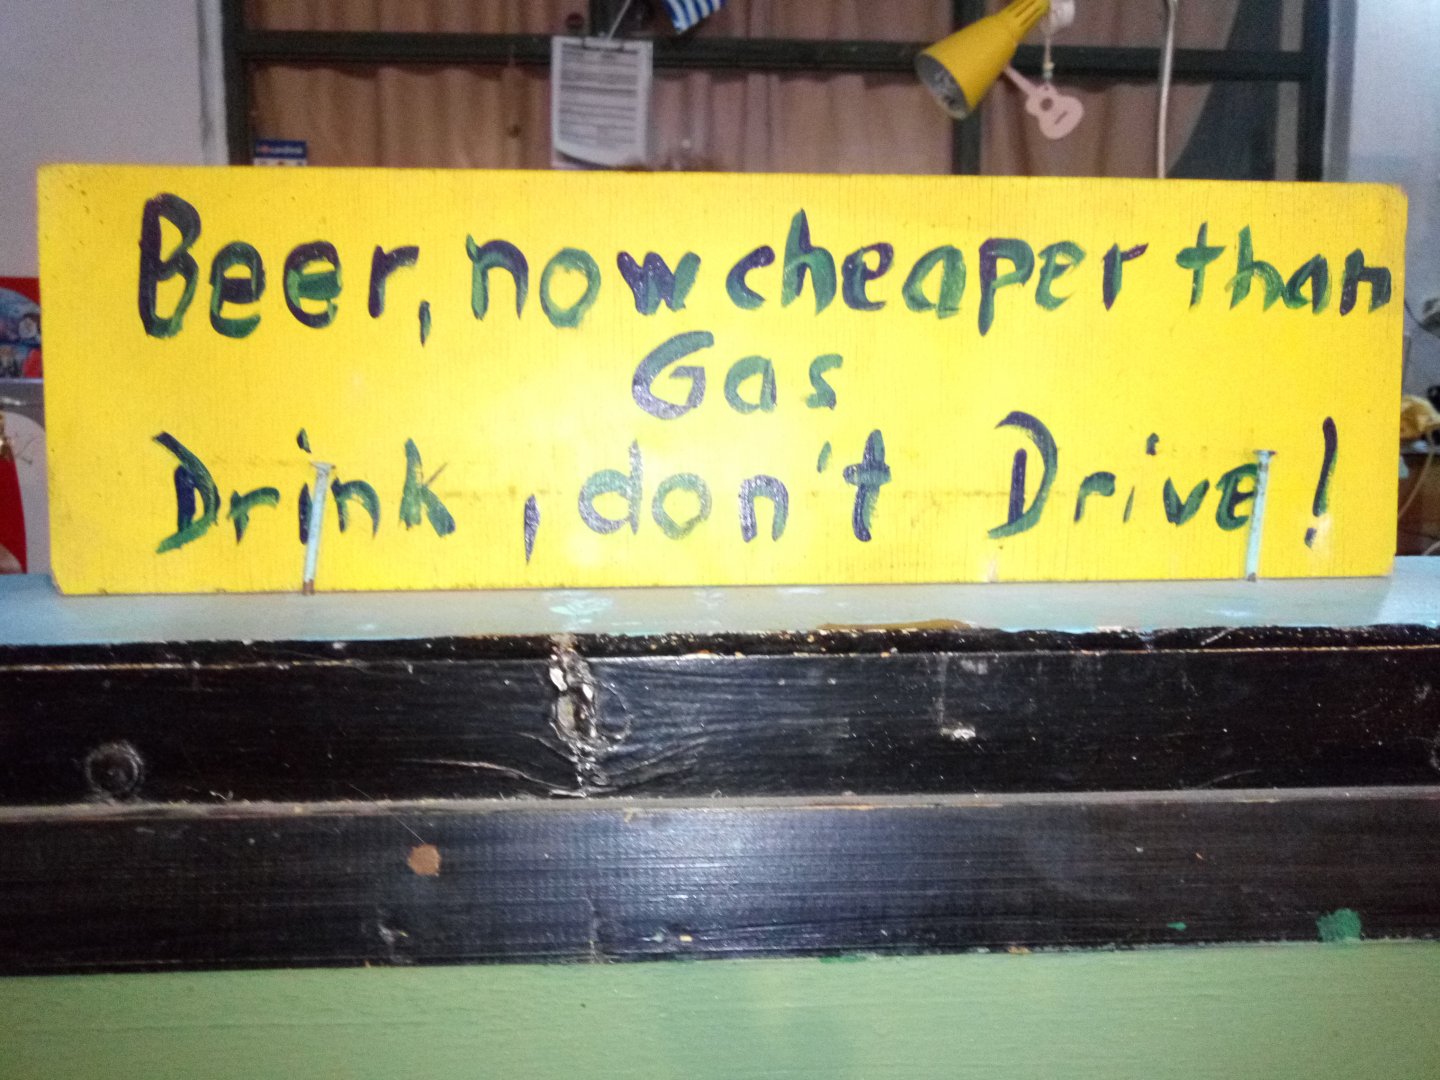 Beer, now cheaper than
Gas
Drink, don't Drive!